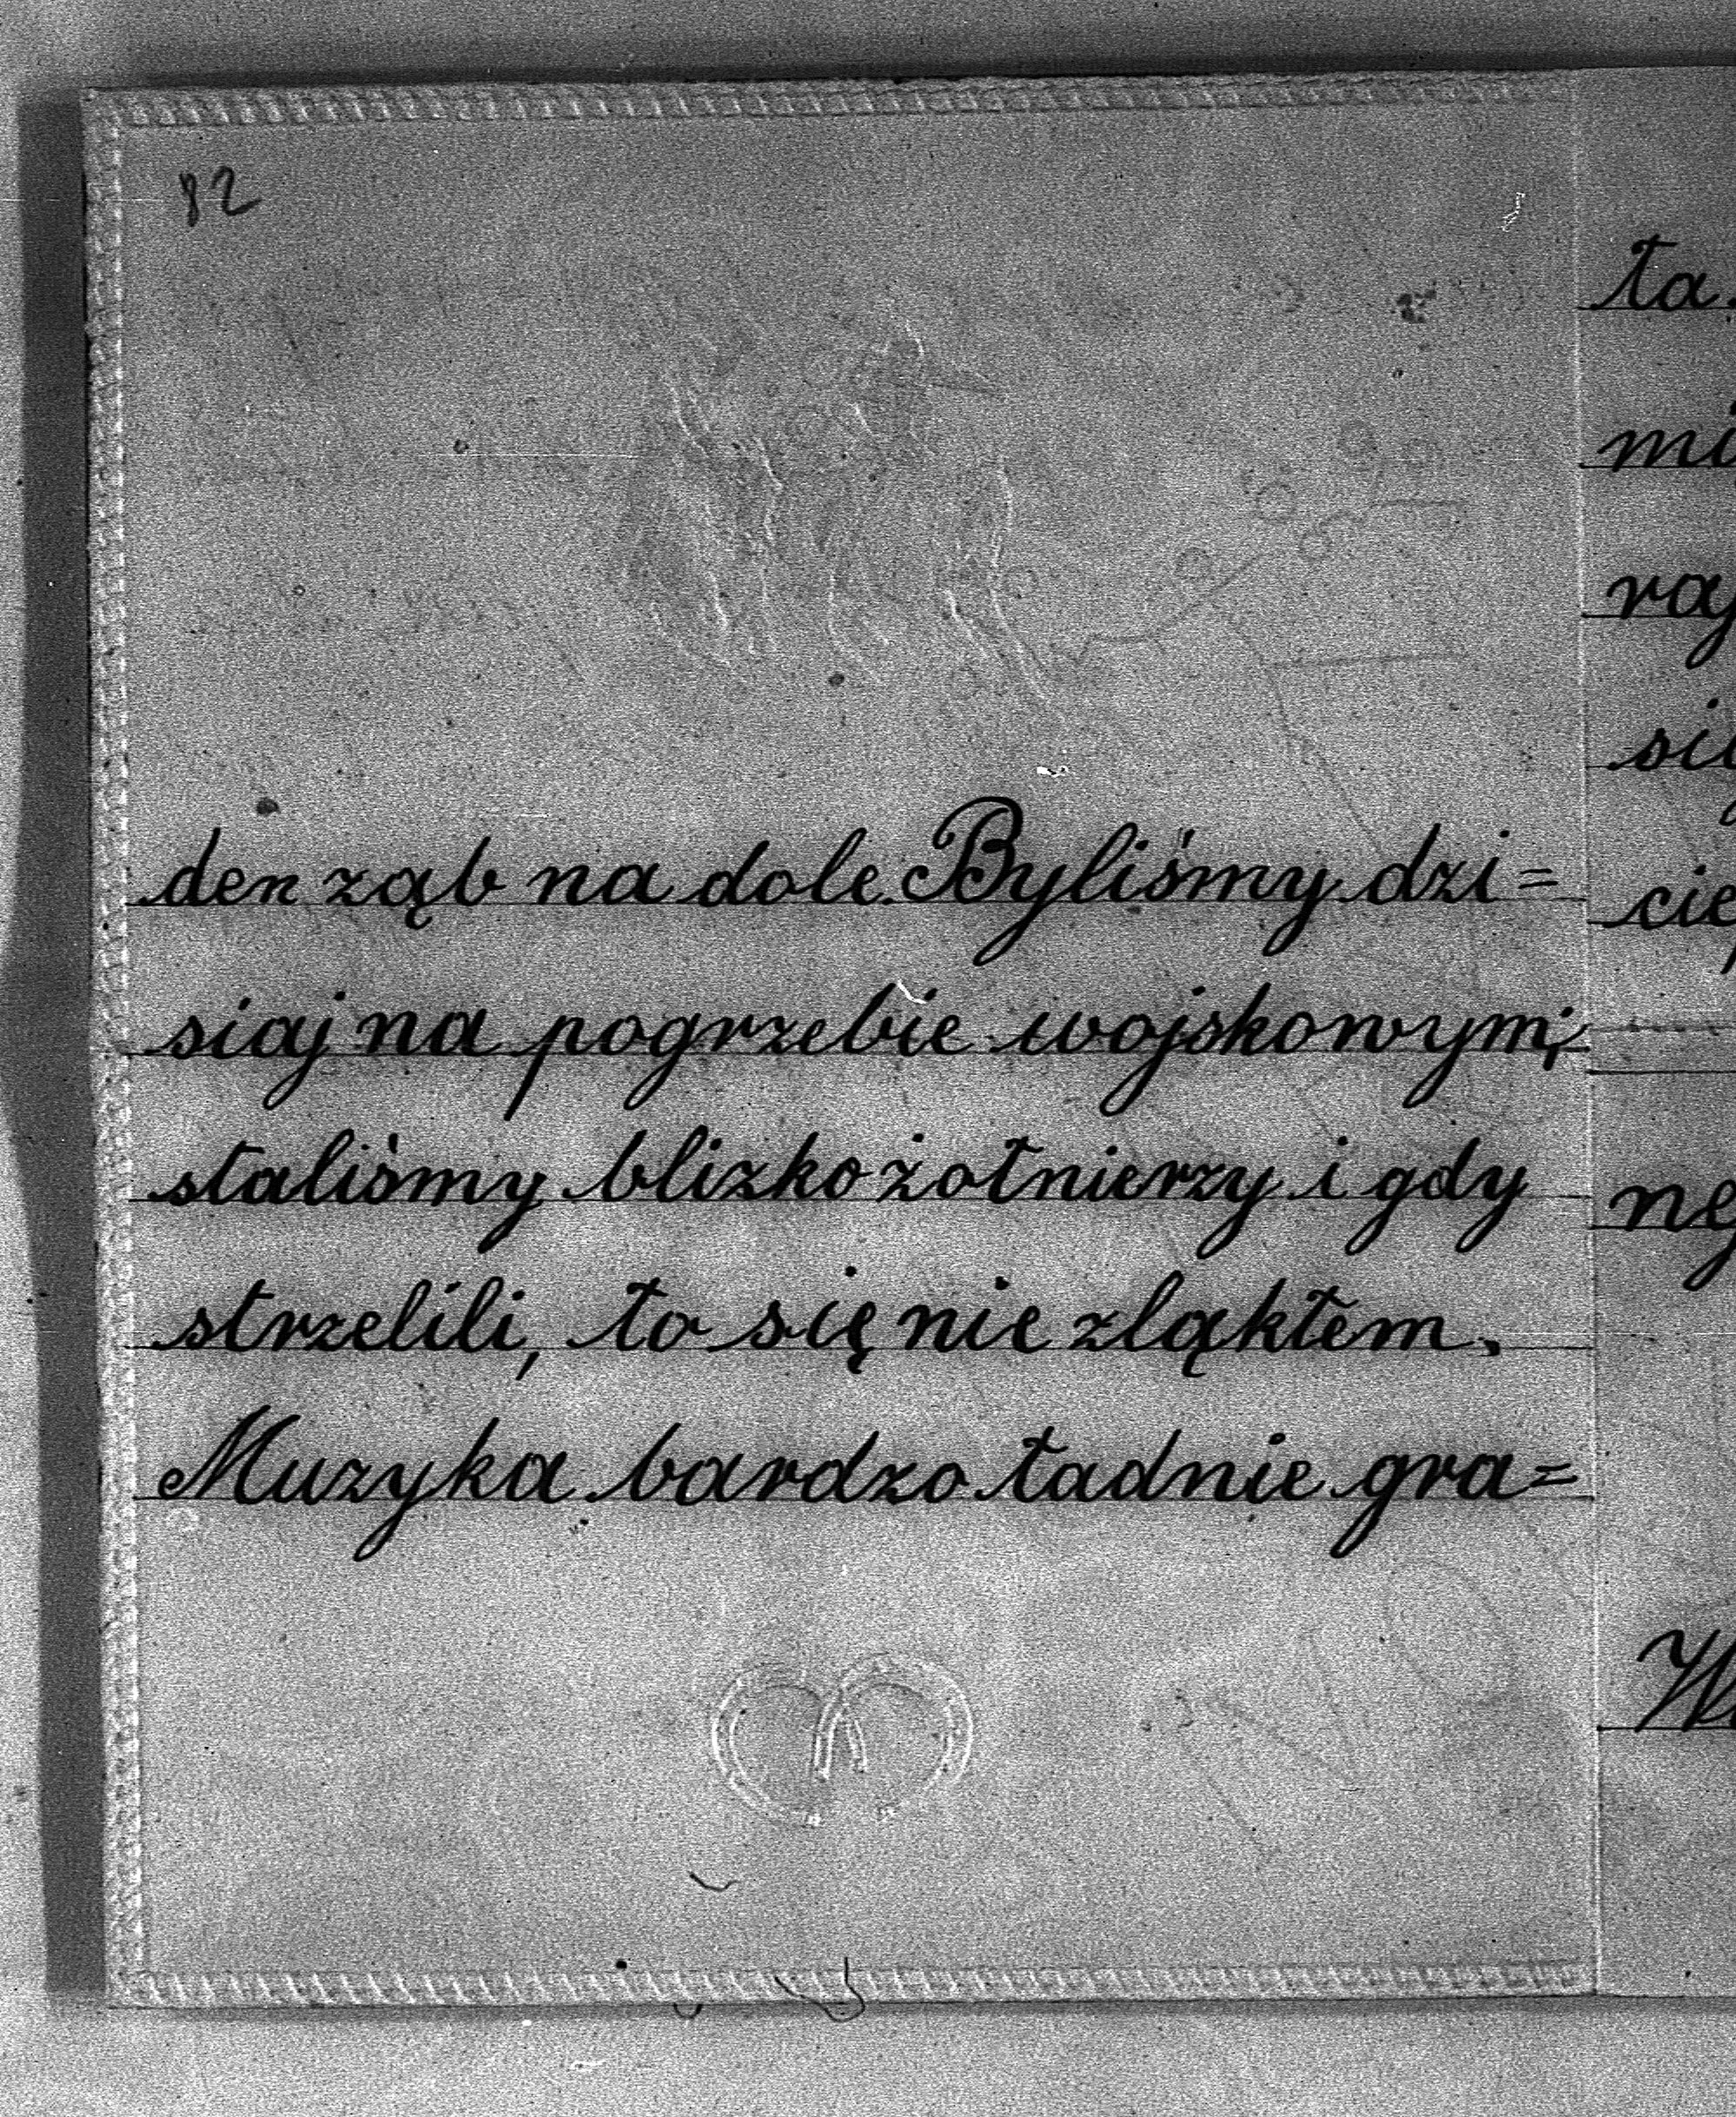 82
den ząb na dole. Byliśmy dzi=
siaj na pogrzebie wojskowym;
staliśmy blizko żołnierzy i gdy
strzelili, to się nie zląkłem.
Muzyka bardzo ładnie gra=
ła